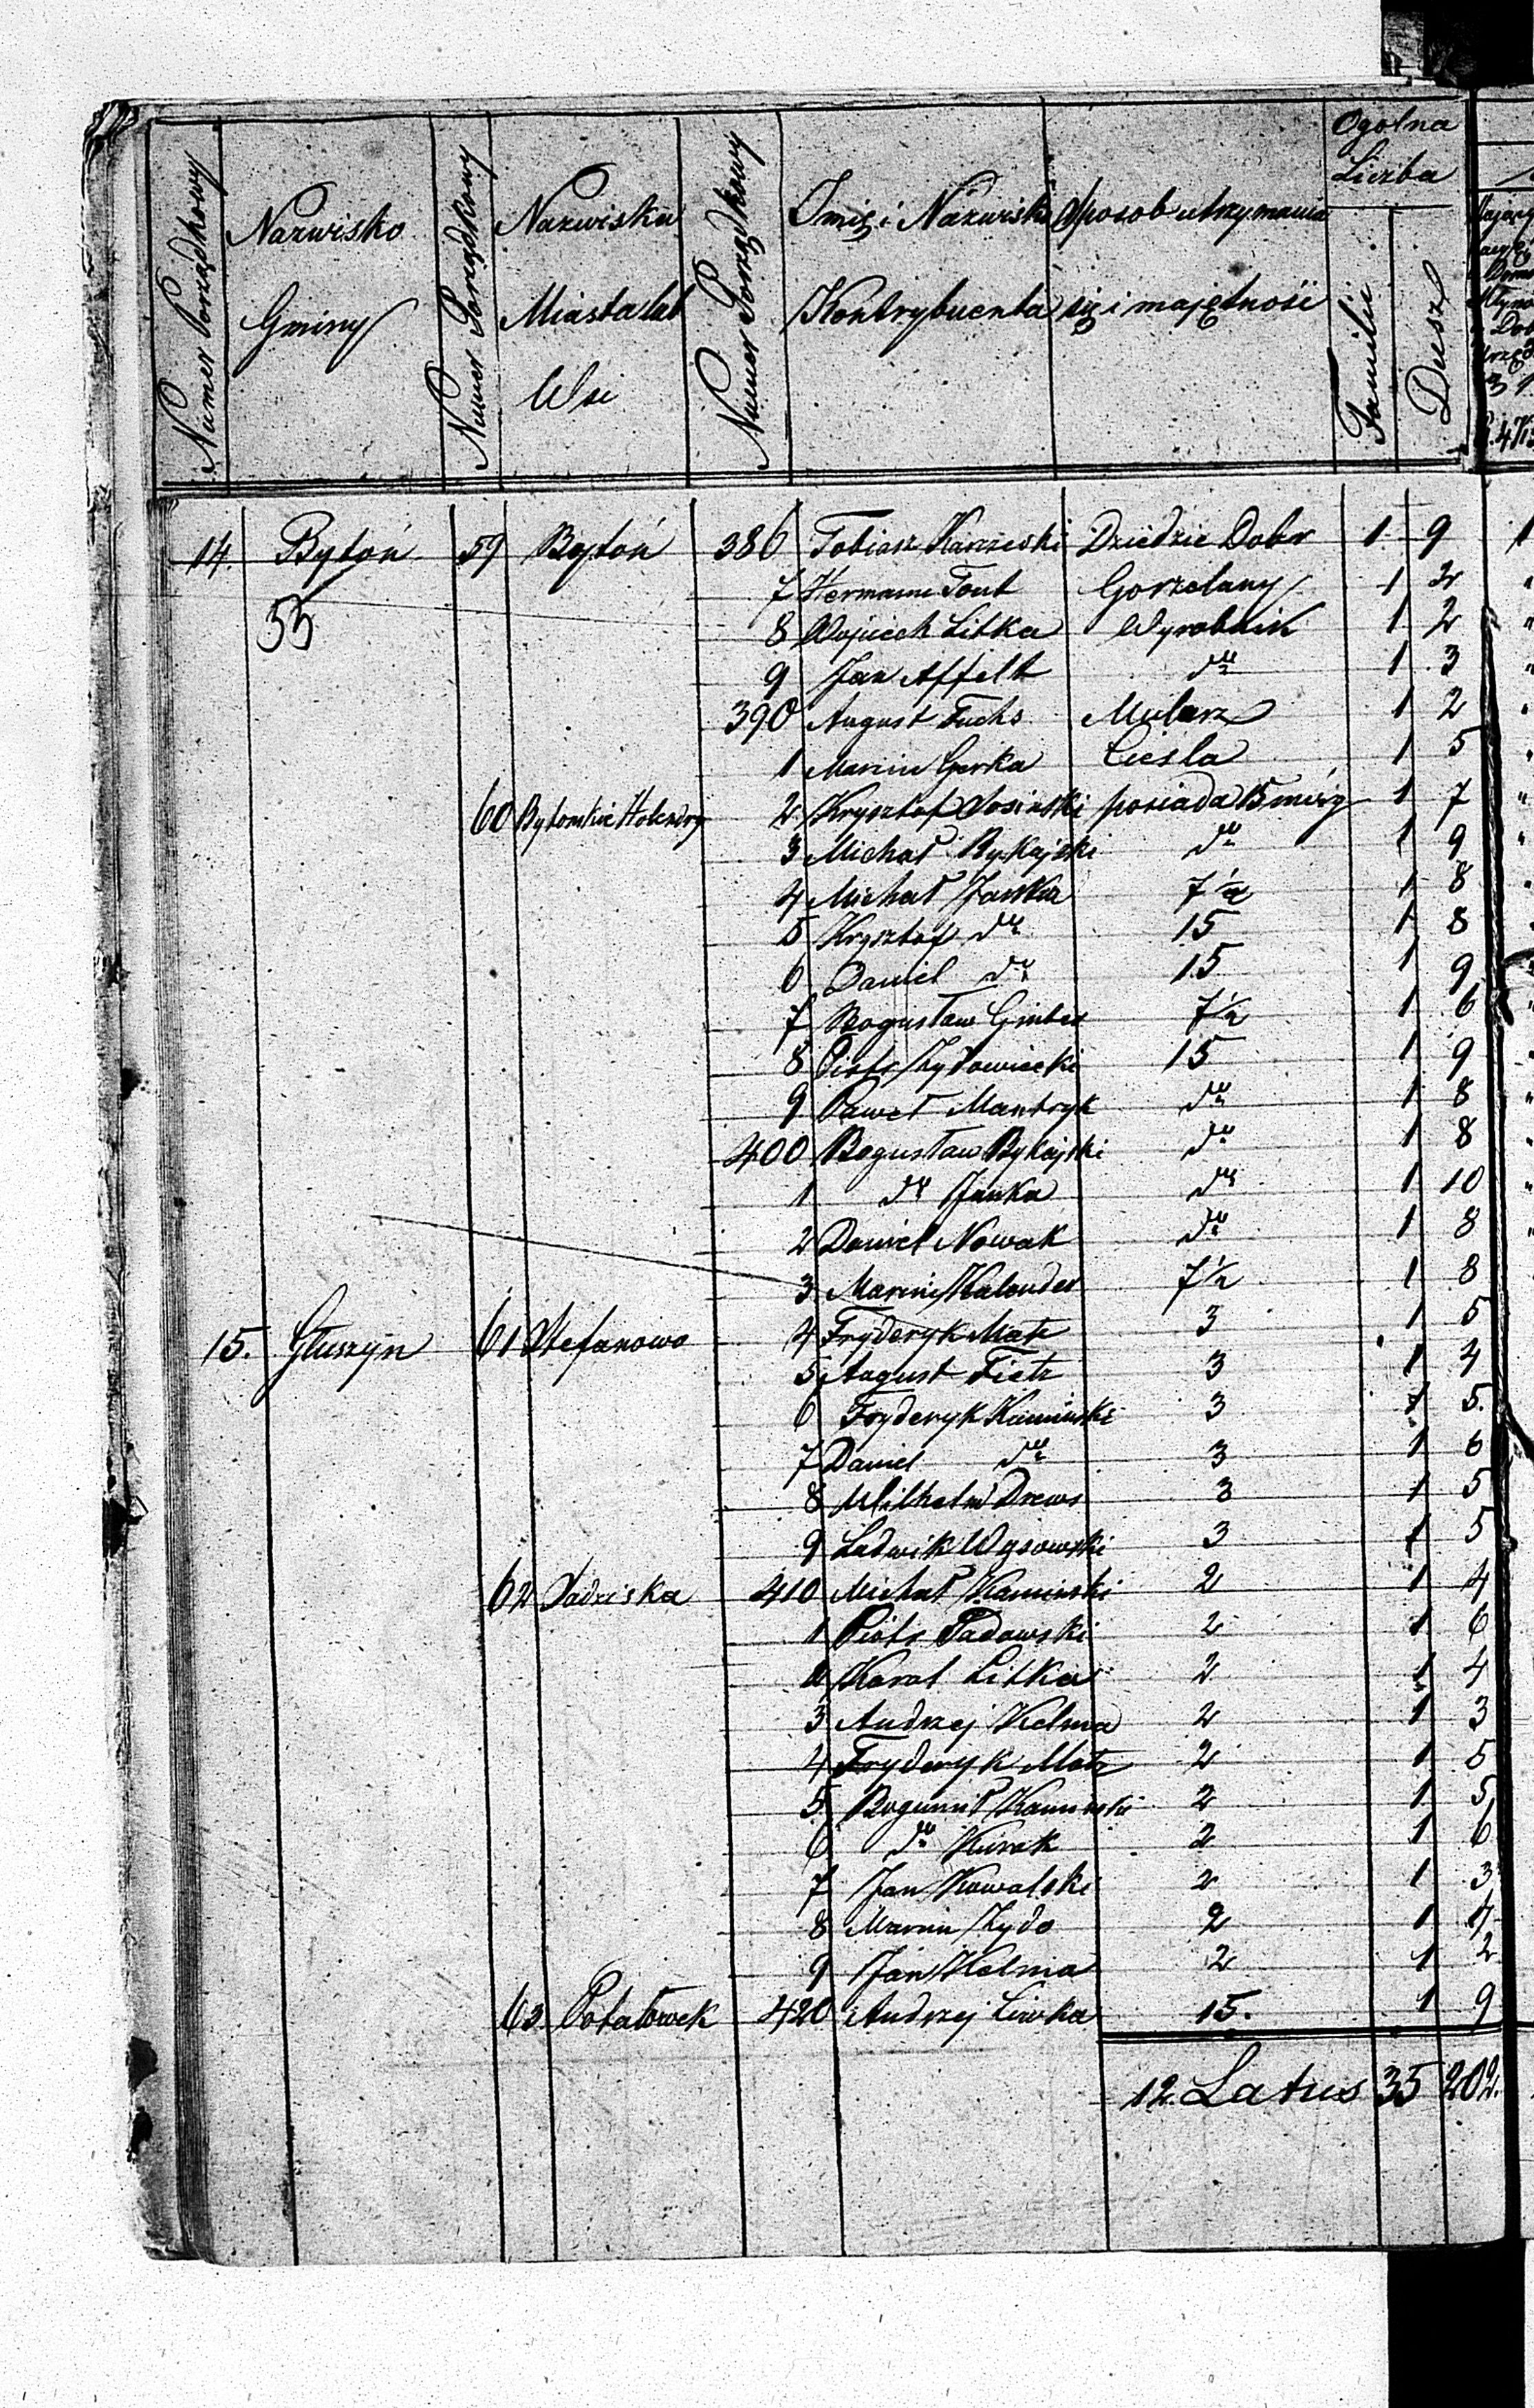 Numer Porządkowy
Nazwisko Gminy
Numer Porządkowy
Nazwiska Miasta lub Wsi
Numer Porządkowy
Imię i Nazwisko Kontrybuenta
Sposob utrzymania się i majętności
Ogolna Liczba
Familii
Dusz
14. Bytoń 59 Bytoń 386 Tobiasz Dziedzic Dobr 1 9 1
55
7 Hermann Gorzelany 1 2
8 Wojciech Litka Wyrobnik 1 2
9 Jan Affelt d⁰ 1 3
390 August Fuchs Mularz 1 2
1 Marcin Gerka Ciesla 1 5
60 Bytomkie Holendry 2 Krysztof Sosinski posiada 15 mórg 1 7
3 Michał Bykajski d⁰ 1 9
4 Michał Janka 7½ 1 8
5 Krysztof d⁰ 15 1 8
6 Daniel d⁰ 15 1 9
7 Bogusław 7½ 1 6
8 Piotr Zydowiecki 15 1 9
9 Paweł Mantryk d⁰ 1 8
400 Bogusław Bykajski d⁰ 1 8
1 d⁰ Janka d⁰ 1 10
2 Daniel Nowak d⁰ 1 8
3 Marcin Kalender 7½ 1 8
15. Głuszyn 61 Stefanowo 4 Fryderyk Matz 3 1 5
5 August Tietz 3 1 4
6 Fryderyk Kaminski 3 1 5.
7 Daniel d⁰ 3 1 6
8 Wilhelm Drews 3 1 5
9 Ludwik Wysowski 3 1 5
62 Sadziska 410 Michał Kaminski 2 1 4
1 Piotr Padowski 2 1 6
2 Karol Litka 2 1 4
3 Andrzej Kelma 2 1 3
4 Fryderyk Matz 2 1 5
5 Bogumił Kaminski 2 1 5
6 d⁰ Kurak 2 1 6
7 Jan Kowalski 2 1 3
8 Marcin Zydo 2 1 4
9 Jan Kelma 2 1 2
63 Potatówek 420 Andrzej 15. 1 9
12. Latus 35 202.